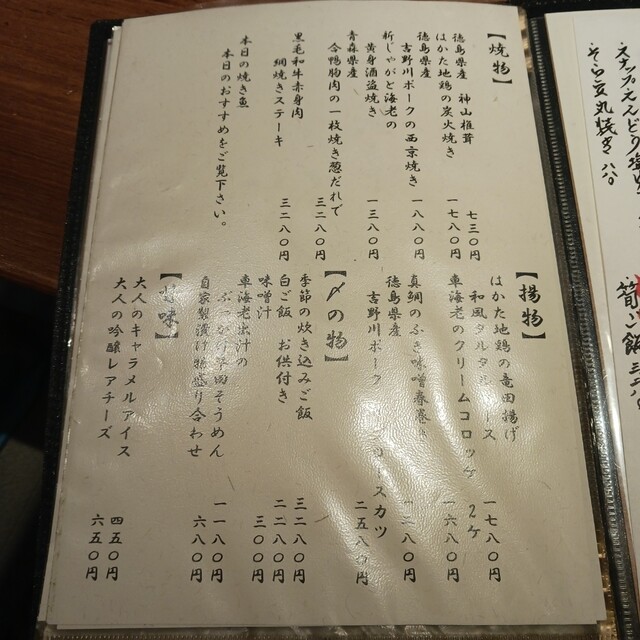 【焼物】
徳島県産　神山椎茸　七三〇円
はかた地鶏の炭火焼き　一七八〇円
徳島県産
吉野川ポークの西京焼き　一八八〇円
新じゃがと海老の
黄身酒盗焼き　一三八〇円
青森県産
合鴨胸肉の一枚焼き葱だれで　三二八〇円
黒毛和牛赤身肉
網焼きステーキ　三二八〇円
本日の焼き魚
本日のおすすめをご覧下さい。
【揚物】
はかた地鶏の竜田揚げ
和風タルタルソース　一七八〇円
車海老のクリームコロッケ　2ケ　一六八〇円
真鯛のふき味噌春巻き　一二八〇円
徳島県産
吉野川ポーク　ロースカツ　二五八〇円
【〆の物】
季節の炊き込みご飯　三二八〇円
白ご飯　お供付き　二二八〇円
味噌汁　三〇〇円
車海老出汁の
ぶっかけ半田そうめん　一一八〇円
自家製漬け物盛り合わせ　六八〇円
【甘味】
大人のキャラメルアイス　四五〇円
大人の吟醸レアチーズ　六五〇円
そら豆丸焼き　八〇
筍ご飯